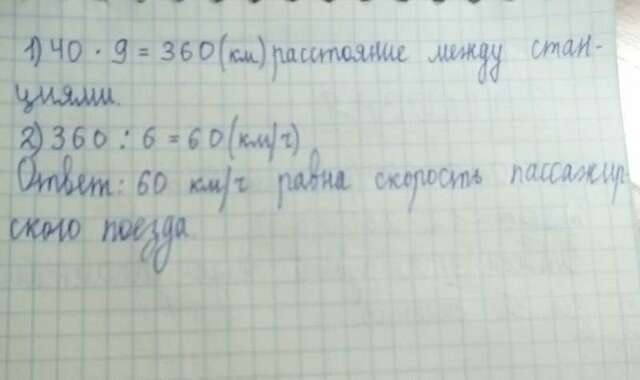 1) 40 · 9 = 360 (км) расстояние между стан-
циями.
2) 360 : 6 = 60 (км/ч)
Ответ: 60 км/ч равна скорость пассажир
ского поезда